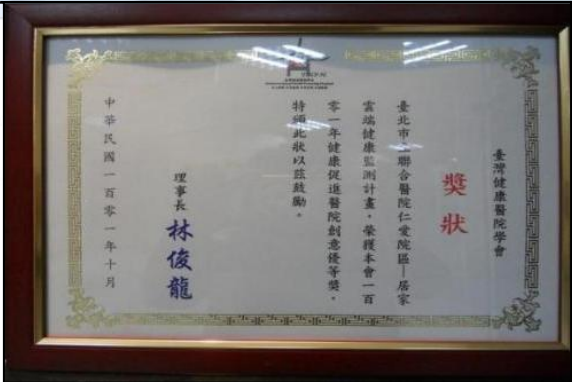 臺灣健康醫院學會
獎狀
臺北市立聯合醫院仁愛院區－居家
雲端健康監測計畫，榮獲本會一百
零一年健康促進醫院創意優等獎，
特頒此狀以茲鼓勵。
理事長 林俊龍
中華民國一百零一年十月